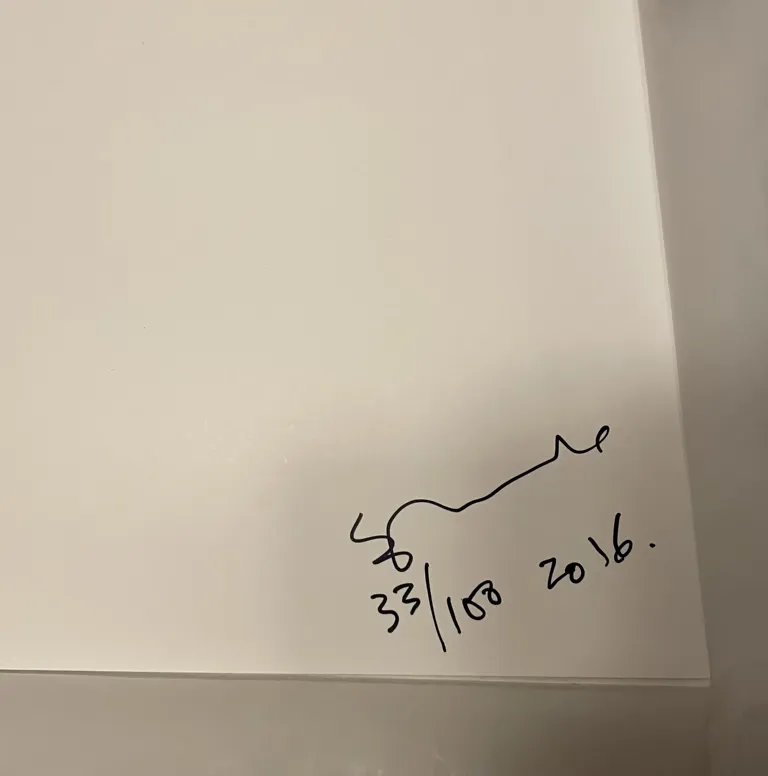 33/100 2016.